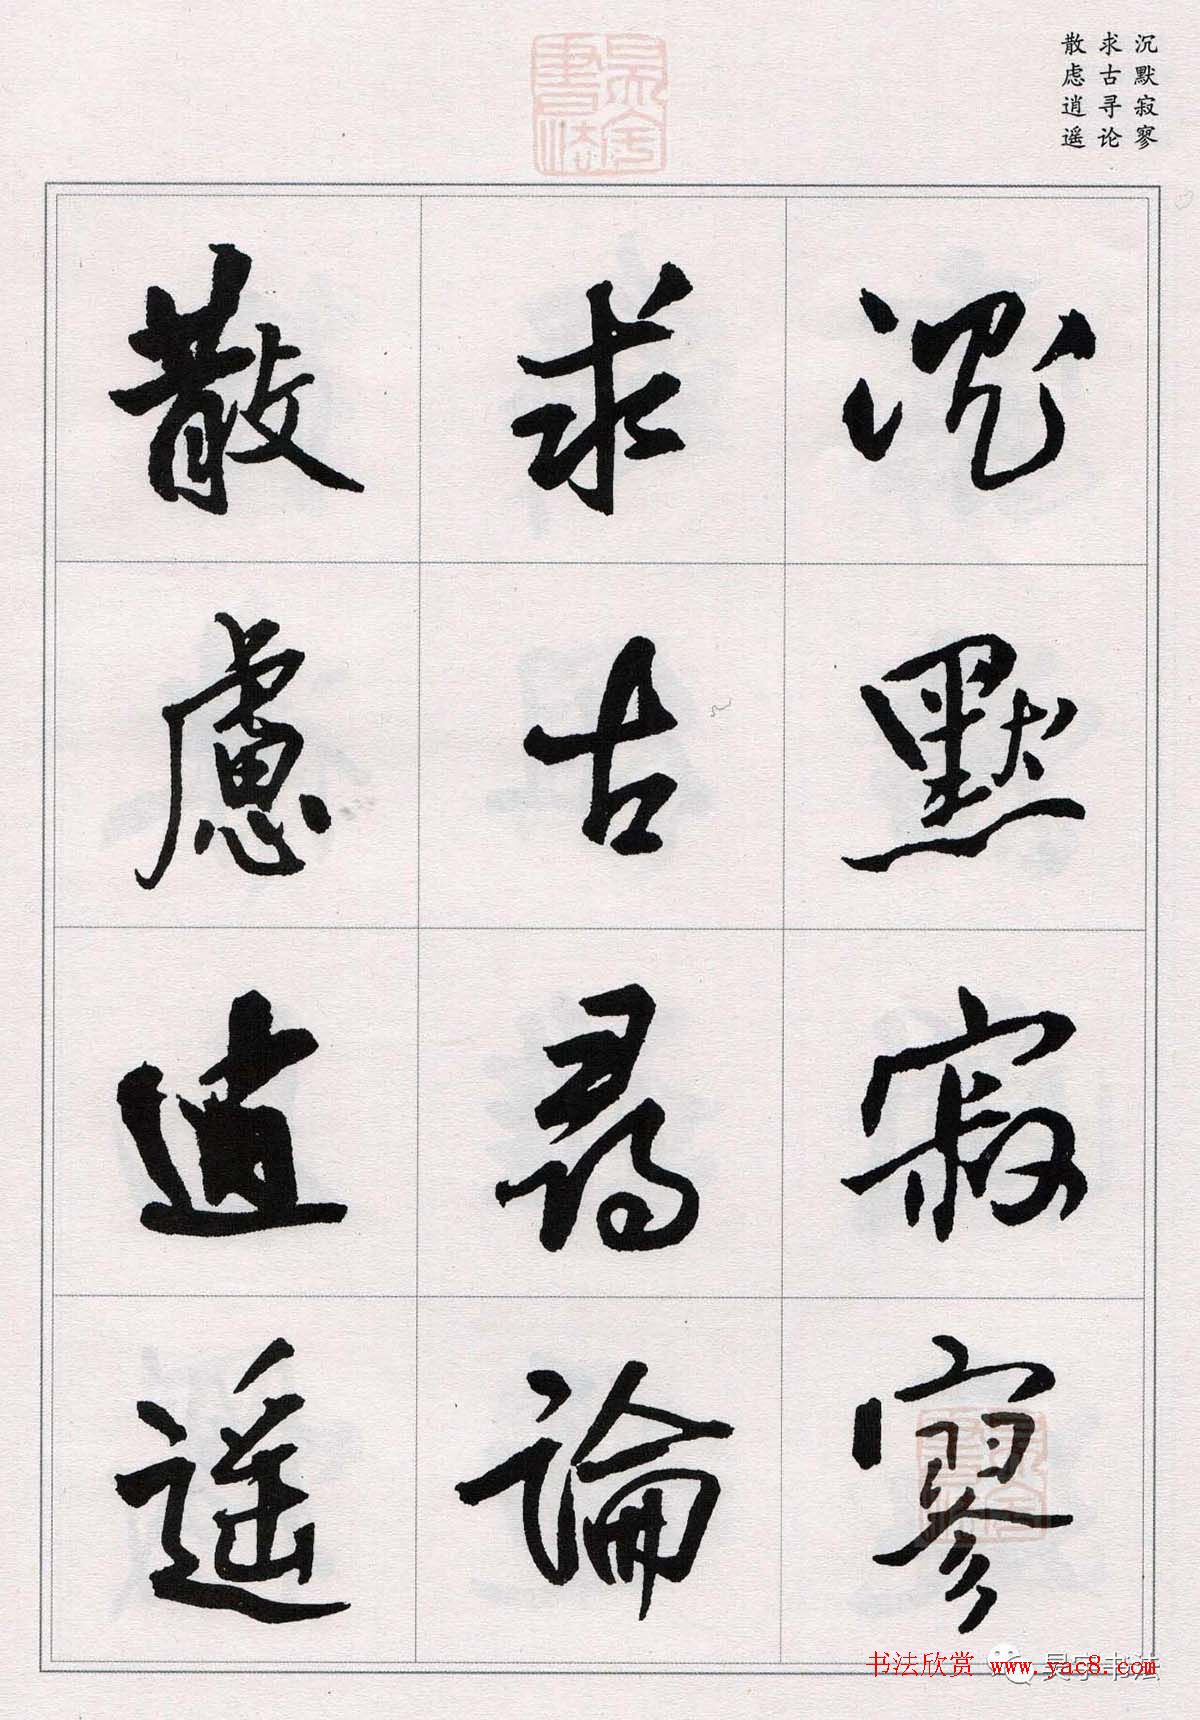 沉默寂寥
求古寻论
散虑逍遥
沉默寂寥
求古尋論
散慮逍遥
书法欣赏 www.yac8.com